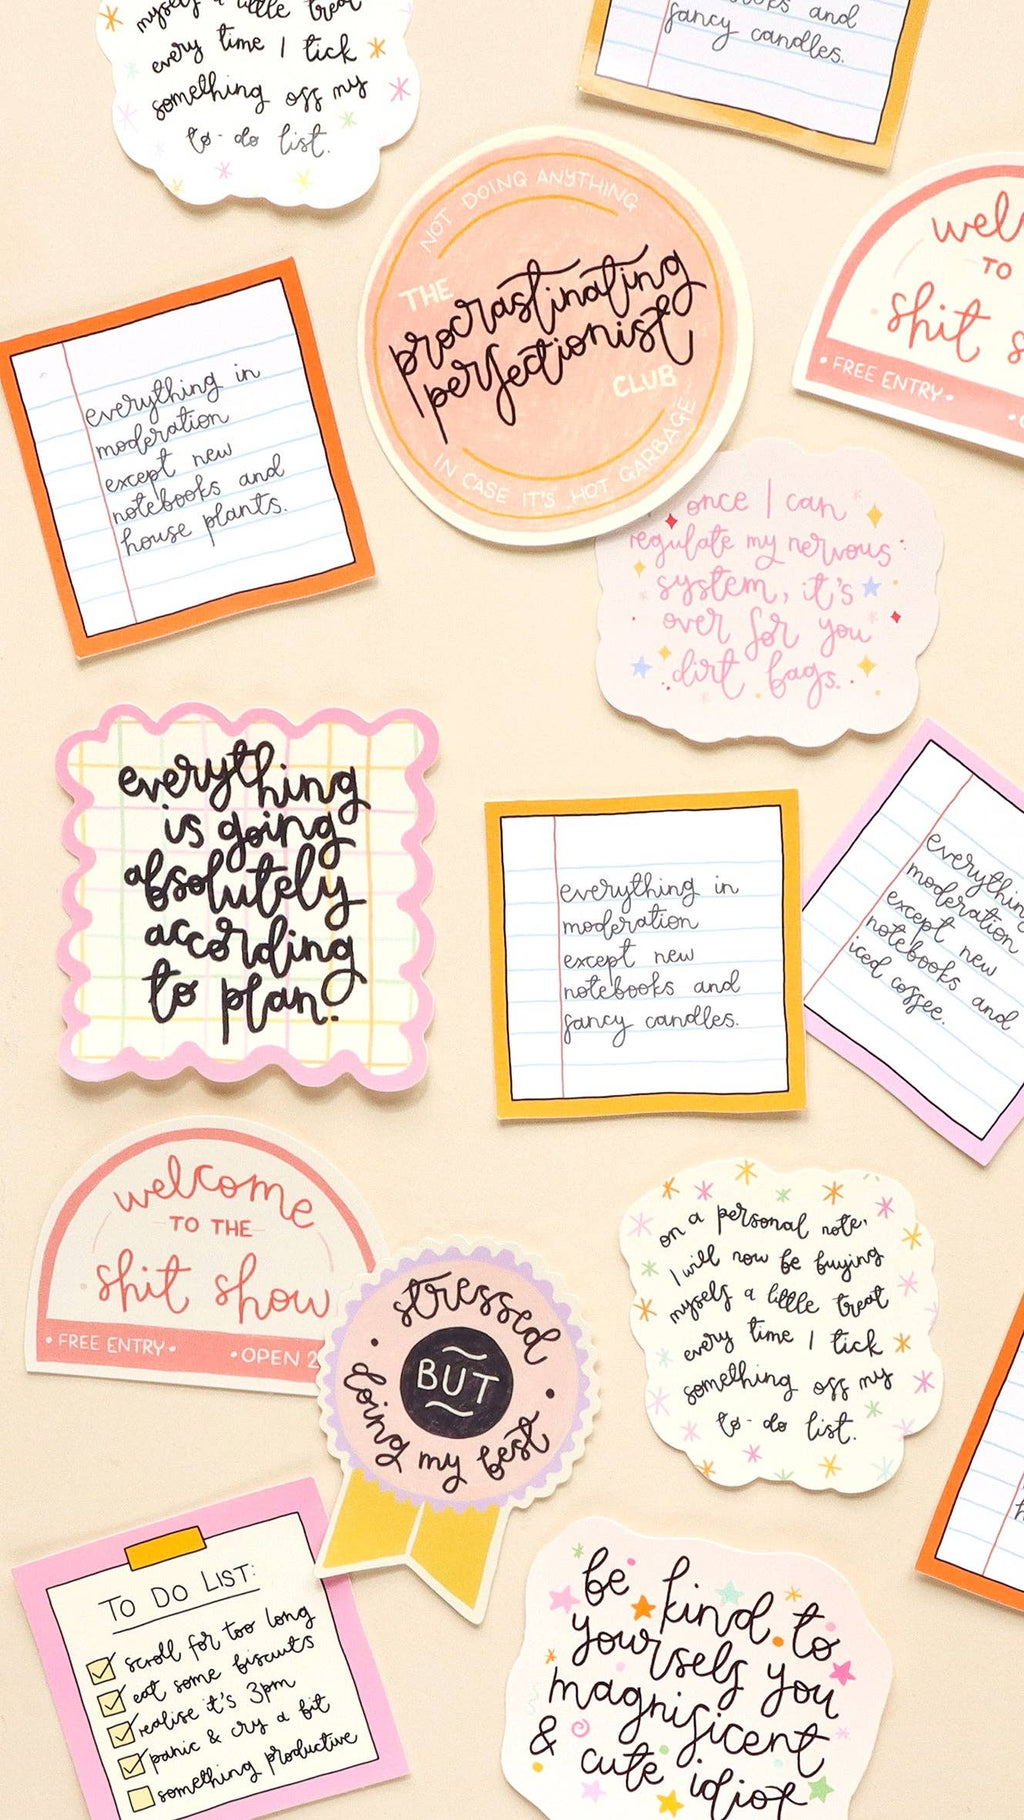 myself a little treat
every time I tick
something off my
to-do list.
and
fancy candles.
NOT DOING ANYTHING
THE
procrastinating
perfectionist
CLUB
IN CASE IT'S HOT GARBAGE
TO
shit s
FREE ENTRY
everything in
moderation
except new
notebooks and
house plants.
once I can
regulate my nervous
system, it's
over for you
dirt bags.
everything
is going
absolutely
according
to plan.
everything in
moderation
except new
notebooks and
fancy candles.
everything
moderation
except new
notebooks and
iced coffee.
welcome
TO THE
shit show
• FREE ENTRY • • OPEN 2
stressed
BUT
doing my best
on a personal note,
I will now be buying
myself a little treat
every time I tick
something off my
to-do list.
TO DO LIST:
scroll for too long
eat some biscuits
realise it's 3pm
panic & cry a bit
something productive
be kind to
yourself you
magnificent
& cute idiot